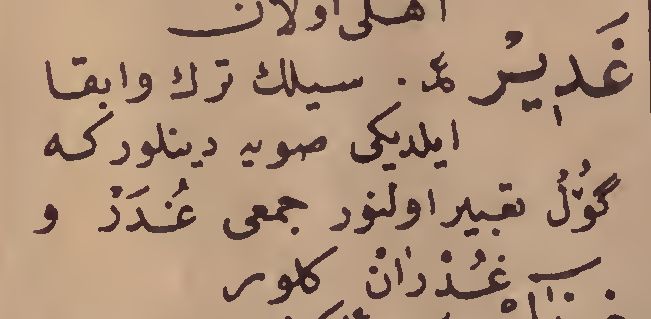 اهلى اولان
غَدِيرْ ع. سيلك ترك وابقا
ايلديكى صويه دينلوركه
گوُلْ تعبير اولنور جمعى غُدَرْ و
غُدْرَانْ كلور